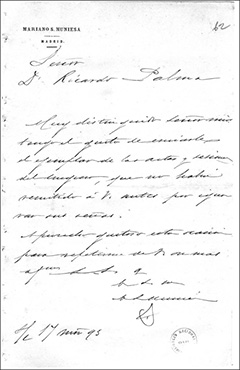 MARIANO S. MUNIESA
MADRID
62
Señor
D. Ricardo Palma
Muy distinguido Señor mio
tengo el gusto de enviarle
el ejemplar de las actas y
del Congreso, que no habia
remitido á V. antes por igno-
rar sus señas.
Aprovecho gustoso esta ocasion
para repetirme de V. su mas
afmo S. S. q
b. s. m
S/c 17 93